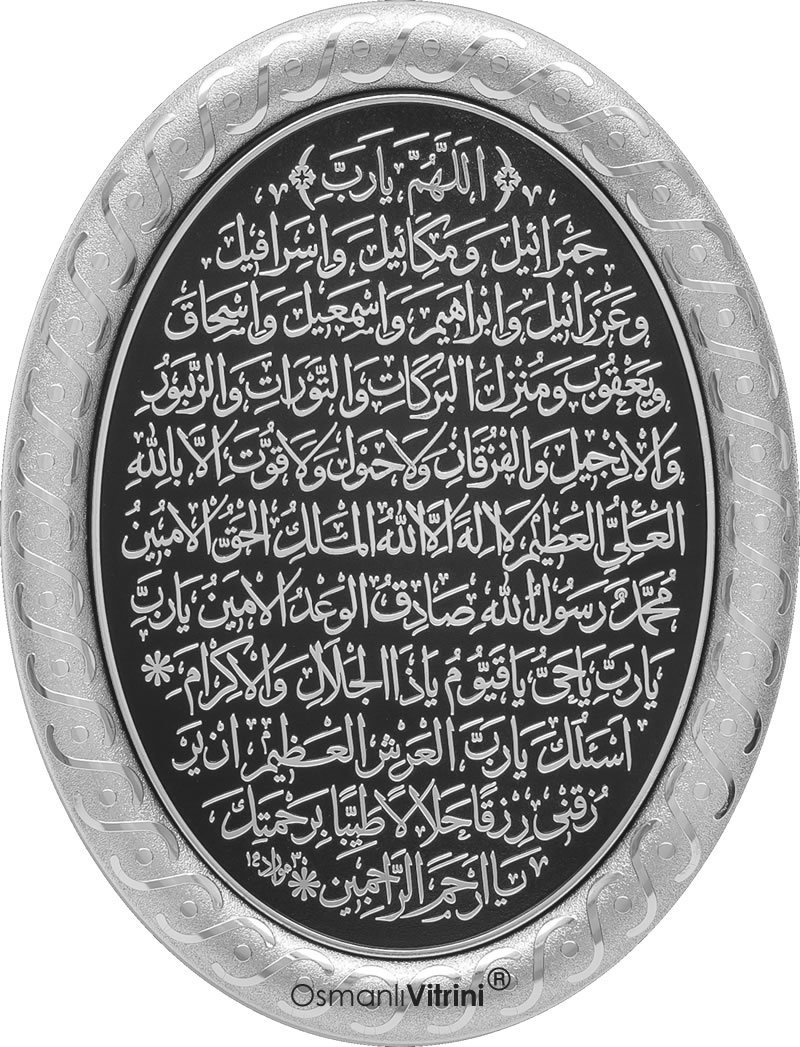 ﴿ اَللّٰهُمَّ يَارَبِّ ﴾
جَبْرَائِيلَ وَمِكَائِيلَ وَاِسْرَافِيلَ
وَعَزْرَائِيلَ وَاِبْرَاهِيمَ وَاِسْمٰعِيلَ وَاِسْحَاقَ
وَيَعْقُوبَ وَمُنْزِلَ الْبَرَكَاتِ وَالتَّوْرَاتِ وَالزَّبُورِ
وَالْاِنْجِيلِ وَالْفُرْقَانِ وَلَاحَوْلَ وَلَا قُوَّتَ اِلَّا بِاللّٰهِ
الْعَلِيِّ الْعَظِيمِ لَا اِلٰهَ اِلَّا اللّٰهُ الْمَلِكُ الْحَقُّ الْمُبِينُ
مُحَمَّدٌ رَسُولُ اللّٰهِ صَادِقُ الْوَعْدِ الْاَمِينُ يَارَبِّ
يَارَبِّ يَاحَيُّ يَاقَيُّومُ يَاذَا الْجَلَالِ وَالْاِكْرَامِ *
اَسْئَلُكَ يَارَبَّ الْعَرْشِ الْعَظِيمِ اَنْ يَرْ
زُقَنِي رِزْقًا حَلَالًا طَيِّبًا بِرَحْمَتِكَ
يَا اَرْحَمَ الرَّاحِمِينَ *
OsmanlıVitrini®